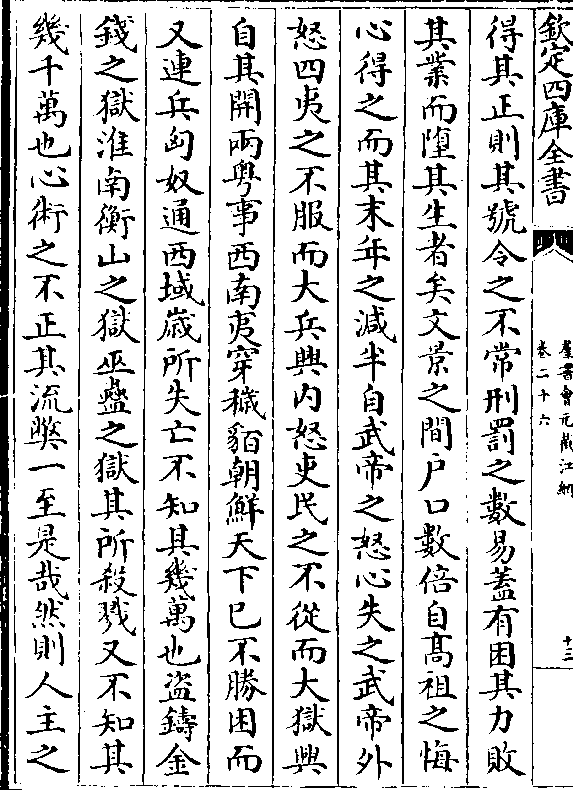 欽定四庫全書
羣書會元截江網
卷二十六
十三
得其正則其號令之不常刑罰之數易蓋有困其力敗
其業而墮其生者矣文景之間户口數倍自髙祖之悔
心得之而其末年之減半自武帝之怒心失之武帝外
怒四夷之不服而大兵興内怒吏民之不從而大獄興
自其開兩粤事西南夷穿穢貊朝鮮天下已不勝困而
又連兵匈奴通西域歳所失亡不知其幾萬也盗鑄金
錢之獄淮南衡山之獄巫蠱之獄其所殺戮又不知其
幾千萬也心術之不正其流弊一至是哉然則人主之